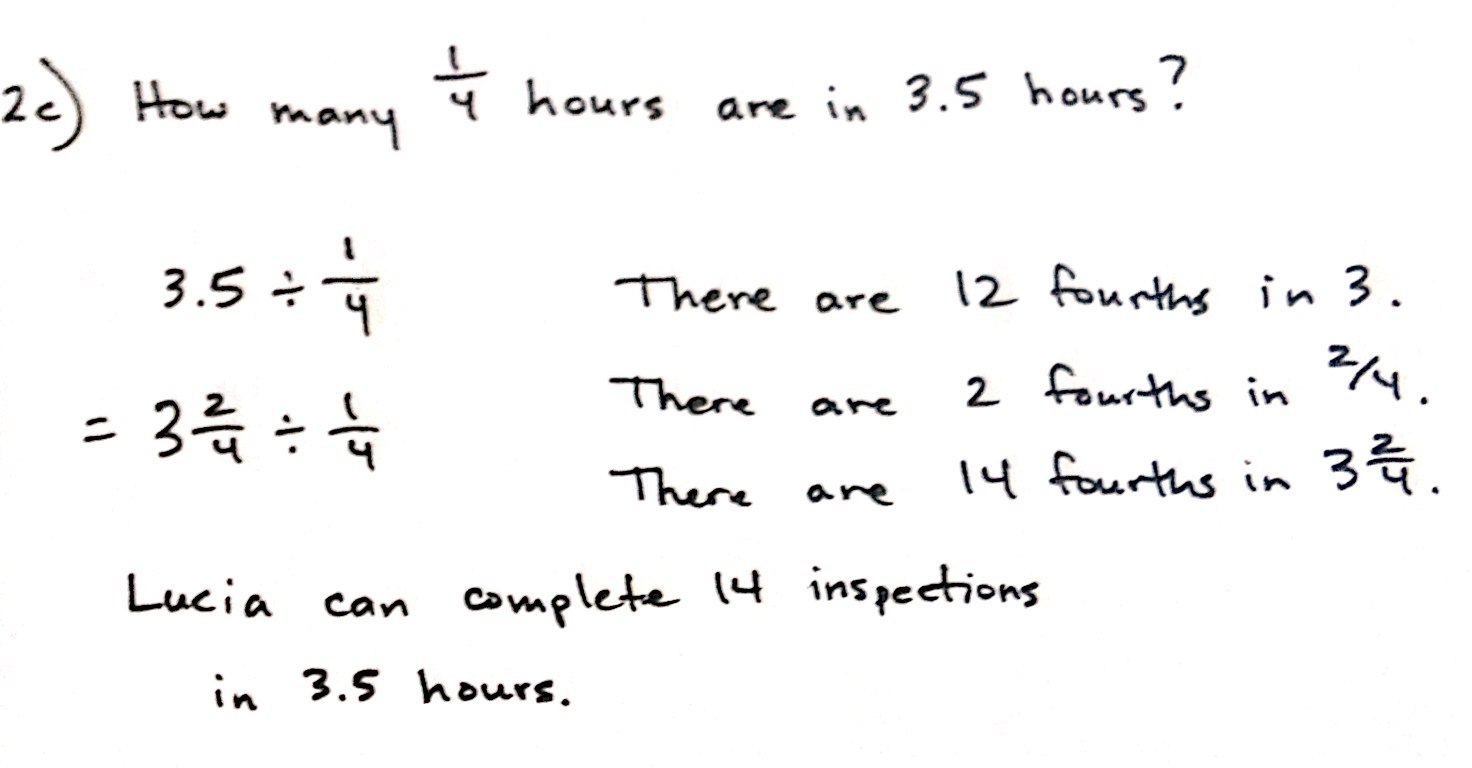 2c) How many 1/4 hours are in 3.5 hours?
3.5 ÷ 1/4
There are 12 fourths in 3.
There are 2 fourths in 2/4.
= 3 2/4 ÷ 1/4
There are 14 fourths in 3 2/4.
Lucia can complete 14 inspections
in 3.5 hours.